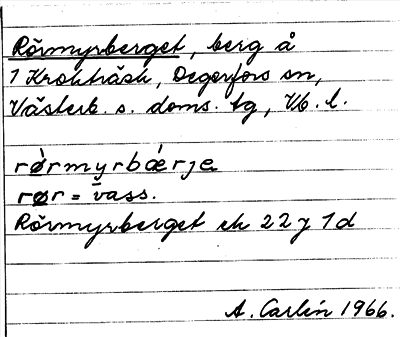 Rörmyrberget, berg å
1 Krokträsk, Degerfors sn,
Västerb. s. doms. tg, Vb. l.
rø̀rmyrbǽrje
rør = vass.
Rörmyrberget ek 22 y 1 d
A. Carlén 1966.